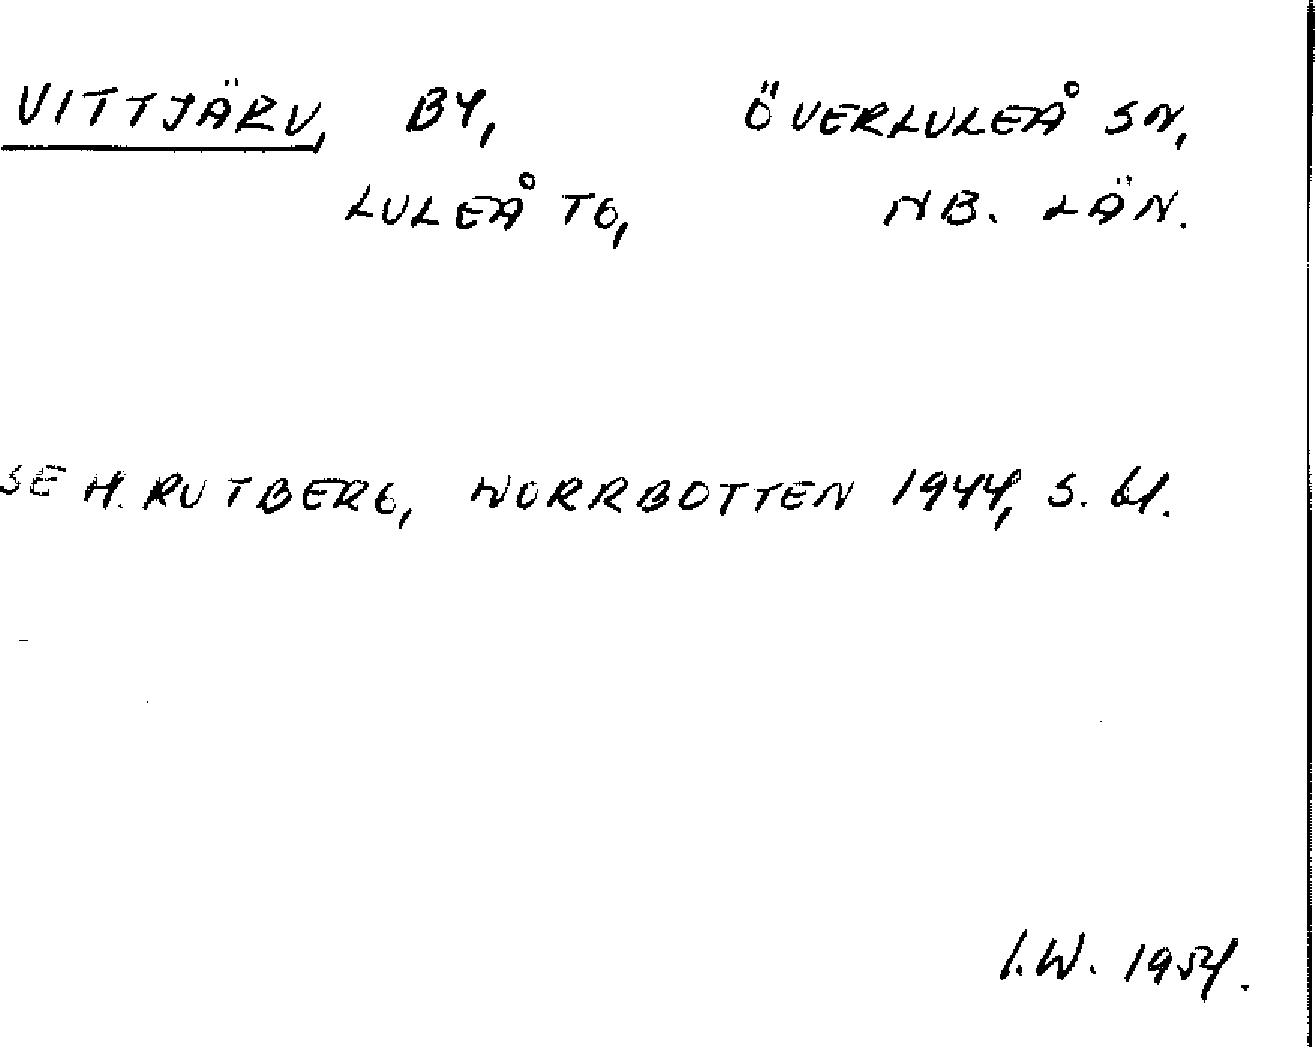 VITTJÄRV, BY, ÖVERLULEÅ SN,
LULEÅ TG, NB. LÄN.
SE H. RUTBERG, NORRBOTTEN 1944, S. 61.
I.W. 1954.